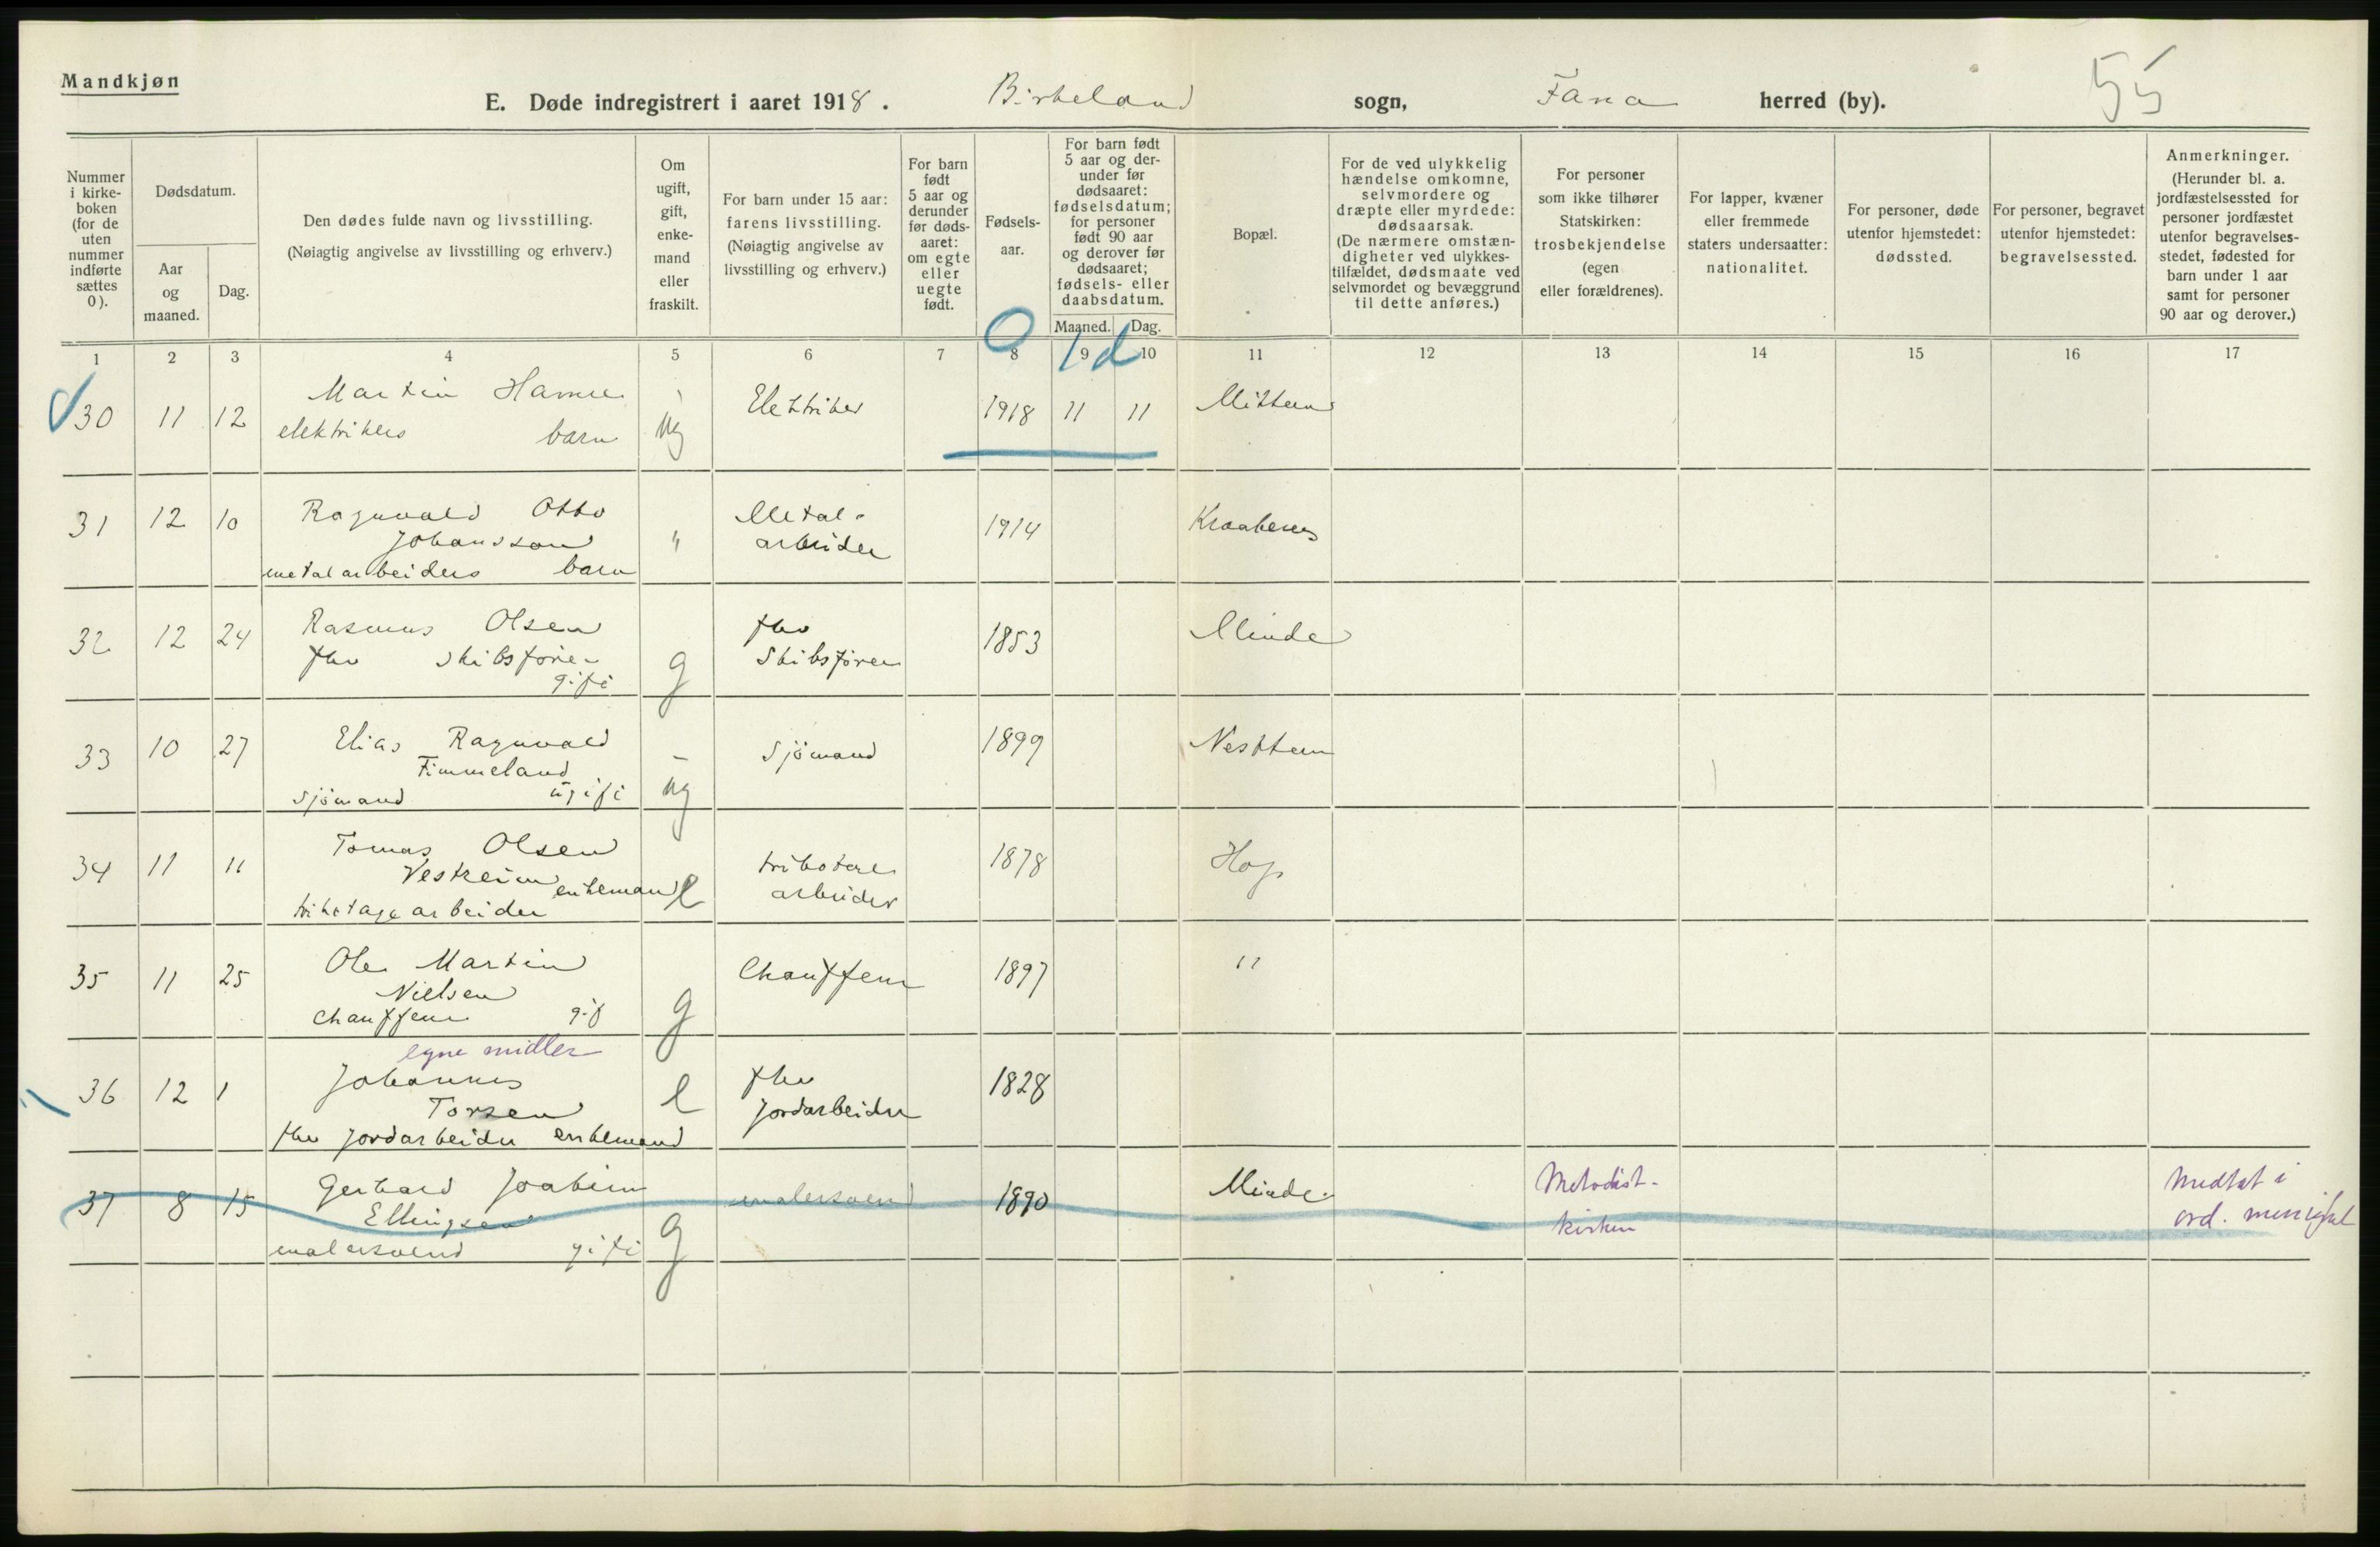 Mandkjøn
E. Døde indregistrert i aaret 1918. Birkeland sogn, Fana herred (by). 55
Nummer i kirke- boken (for de uten nummer indførte sættes 0).
Dødsdatum.
Aar og maaned.
Dag.
Den dødes fulde navn og livsstilling.
(Nøiagtig angivelse av livsstilling og erhverv.)
Om ugift, gift, enke- mand eller fraskilt.
For barn under 15 aar: farens livsstilling.
(Nøiagtig angivelse av livsstilling og erhverv.)
For barn født 5 aar og derunder før døds- aaret: om egte eller uegte født.
Fødsels- aar.
For barn født 5 aar og der- under før dødsaaret: fødselsdatum; for personer født 90 aar og derover før dødsaaret; fødsels- eller daabsdatum.
Maaned. Dag.
Bopæl.
For de ved ulykkelig hændelse omkomne, selvmordere og dræpte eller myrdede: dødsaarsak.
(De nærmere omstæn- digheter ved ulykkes- tilfældet, dødsmaate ved selvmordet og bevæggrund til dette anføres.)
For personer som ikke tilhører Statskirken: trosbekjendelse (egen eller forældrenes).
For lapper, kvæner eller fremmede staters undersaatter: nationalitet.
For personer, døde utenfor hjemstedet: dødssted.
For personer, begravet utenfor hjemstedet: begravelsessted.
Anmerkninger.
(Herunder bl. a. jordfæstelsessted for personer jordfæstet utenfor begravelses- stedet, fødested for barn under 1 aar samt for personer 90 aar og derover.)
0 1 d
1 2 3 4 5 6 7 8 9 10 11 12 13 14 15 16 17
30 11 12 Martin Hamre ug Elektriker 1918 11 11
elektrikers barn
31 12 10 Ragnvald Otto " Metal- 1914 Kraakenes
Johansson arbeider
metalarbeiders barn
32 12 24 Rasmus Olsen g fhv 1853 Minde
fhv skibsfører Skibsfører
gift
33 10 27 Elias Ragnvald ug Sjömand 1899 Nesttun
Fimmeland
Sjömand ugift
34 11 11 Tomas Olsen e 1878 Hop
Vestreim enkemand arbeider
trikotagearbeider
35 11 25 Ole Martin g Chauffeur 1897 "
Nielsen
Chauffeur gift
egne midler
36 12 1 Johannes e fhv 1828
Torsen Jordarbeider
fhv Jordarbeider enkemand
37 8 15 Gerhard Joakim g malersvend 1890 Minde Metodist- Medtat i
Ellingsen kirken ord. menighet
malersvend gift